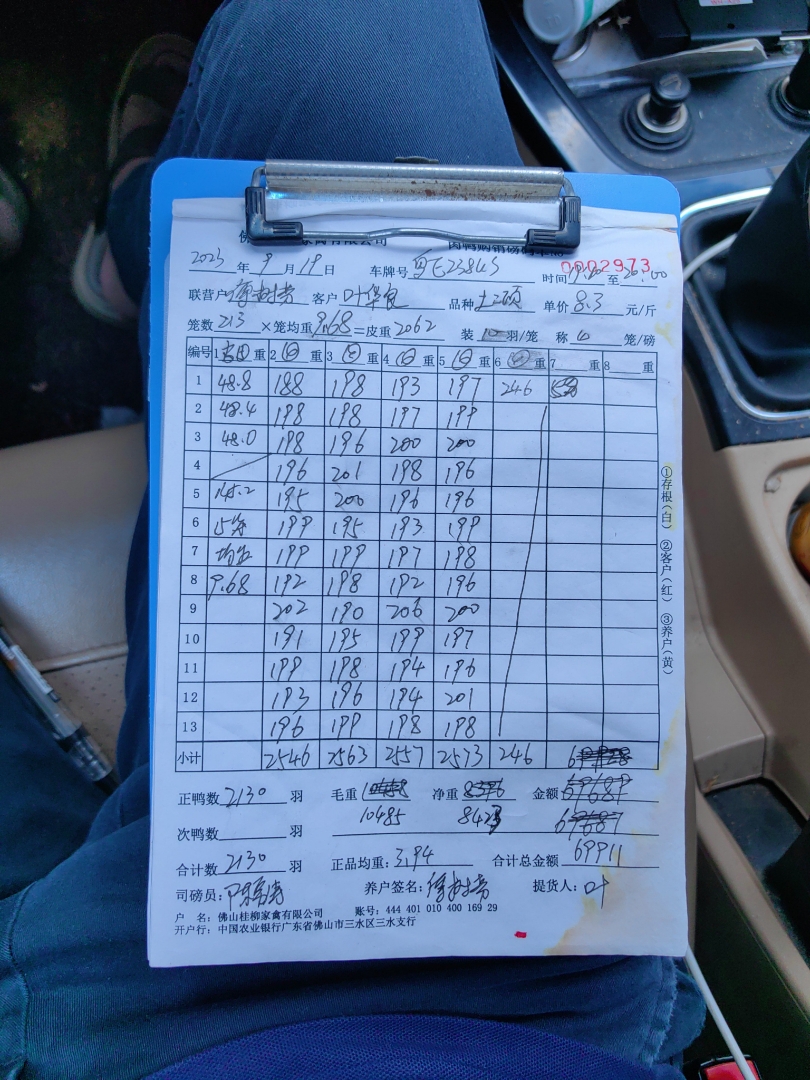 0002973
2023 年 9 月 19 日 车牌号 时间 至 20:00
联营户 客户 品种 土二项 单价 8.3 元/斤
笼数 213 ×笼均重 9.68 =皮重 2062 装 10 羽/笼 称 笼/磅
编号 1 重 2 重 3 重 4 重 5 重 6 重 7 重 8 重
1 48.8 188 198 193 197 246 5
2 48.4 198 198 197 199
3 48.0 198 196 200 200
4 196 201 198 196
5 145.2 195 200 196 196
6 15 199 195 193 199
7 均重 199 199 197 198
8 9.68 192 198 192 196
9 202 190 206 200
10 191 195 199 197
11 199 198 194 196
12 193 196 194 201
13 196 199 198 198
小计 2546 2563 2557 2573 246
正鸭数 2130 羽 毛重 净重 金额
10485 8423
次鸭数 羽
合计数 2130 羽 正品均重: 3.94 合计总金额 69911
司磅员: 养户签名: 提货人: 叶
户 名: 佛山桂柳家禽有限公司 账号: 444 401 010 400 169 29
开户行: 中国农业银行广东省佛山市三水区三水支行
①存根(白) ②客户(红) ③养户(黄)